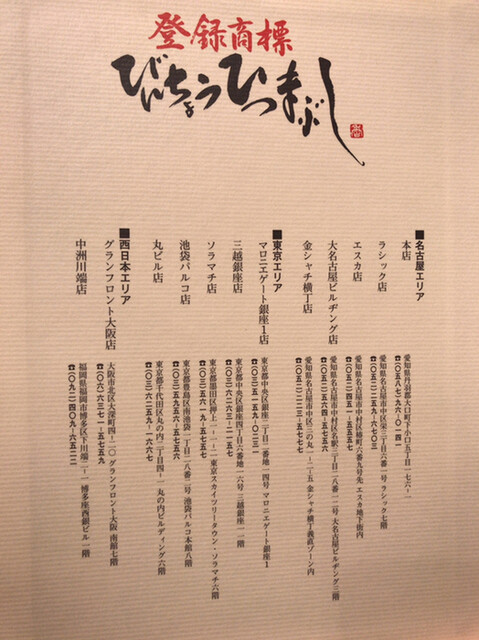 登録商標
びんちょうひつまぶし
■名古屋エリア
本店
愛知県丹羽郡大口町下小口五丁目一七六ー二
☎(〇五八七)九六ー〇一四一
ラシック店
愛知県名古屋市中区栄三丁目六番一号 ラシック七階
☎(〇五二)二五九ー六七〇三
エスカ店
愛知県名古屋市中村区椿町六番九号先 エスカ地下街内
☎(〇五二)四五一ー五五五七
大名古屋ビルヂング店
愛知県名古屋市中村区名駅三丁目二八番一二号 大名古屋ビルヂング三階
☎(〇五二)五六四ー五七五六
金シャチ横丁店
愛知県名古屋市中区三の丸一ー二ー五 金シャチ横丁義直ゾーン内
☎(〇五二)二二三ー五七五七
■東京エリア
マロニエゲート銀座1店
東京都中央区銀座二丁目二番地一四号 マロニエゲート銀座1
☎(〇三)五一五九ー〇二三一
三越銀座店
東京都中央区銀座四丁目六番地一六号 三越銀座一一階
☎(〇三)六二六三ー二一一五
ソラマチ店
東京都墨田区押上一ー一ー二 東京スカイツリータウン・ソラマチ六階
☎(〇三)五六一九ー五七五一
池袋パルコ店
東京都豊島区南池袋一丁目二八番二号 池袋パルコ本館八階
☎(〇三)五九五六ー五七五六
丸ビル店
東京都千代田区丸の内二丁目四ー一 丸の内ビルディング六階
☎(〇三)六二五九ー一六七六
■西日本エリア
グランフロント大阪店
大阪市北区大深町四ー二〇 グランフロント大阪 南館七階
☎(〇六)六三七一ー五七五九
中洲川端店
福岡県福岡市博多区下川端二ー一 博多座西銀ビル一階
☎(〇九二)四〇九ー六五二二